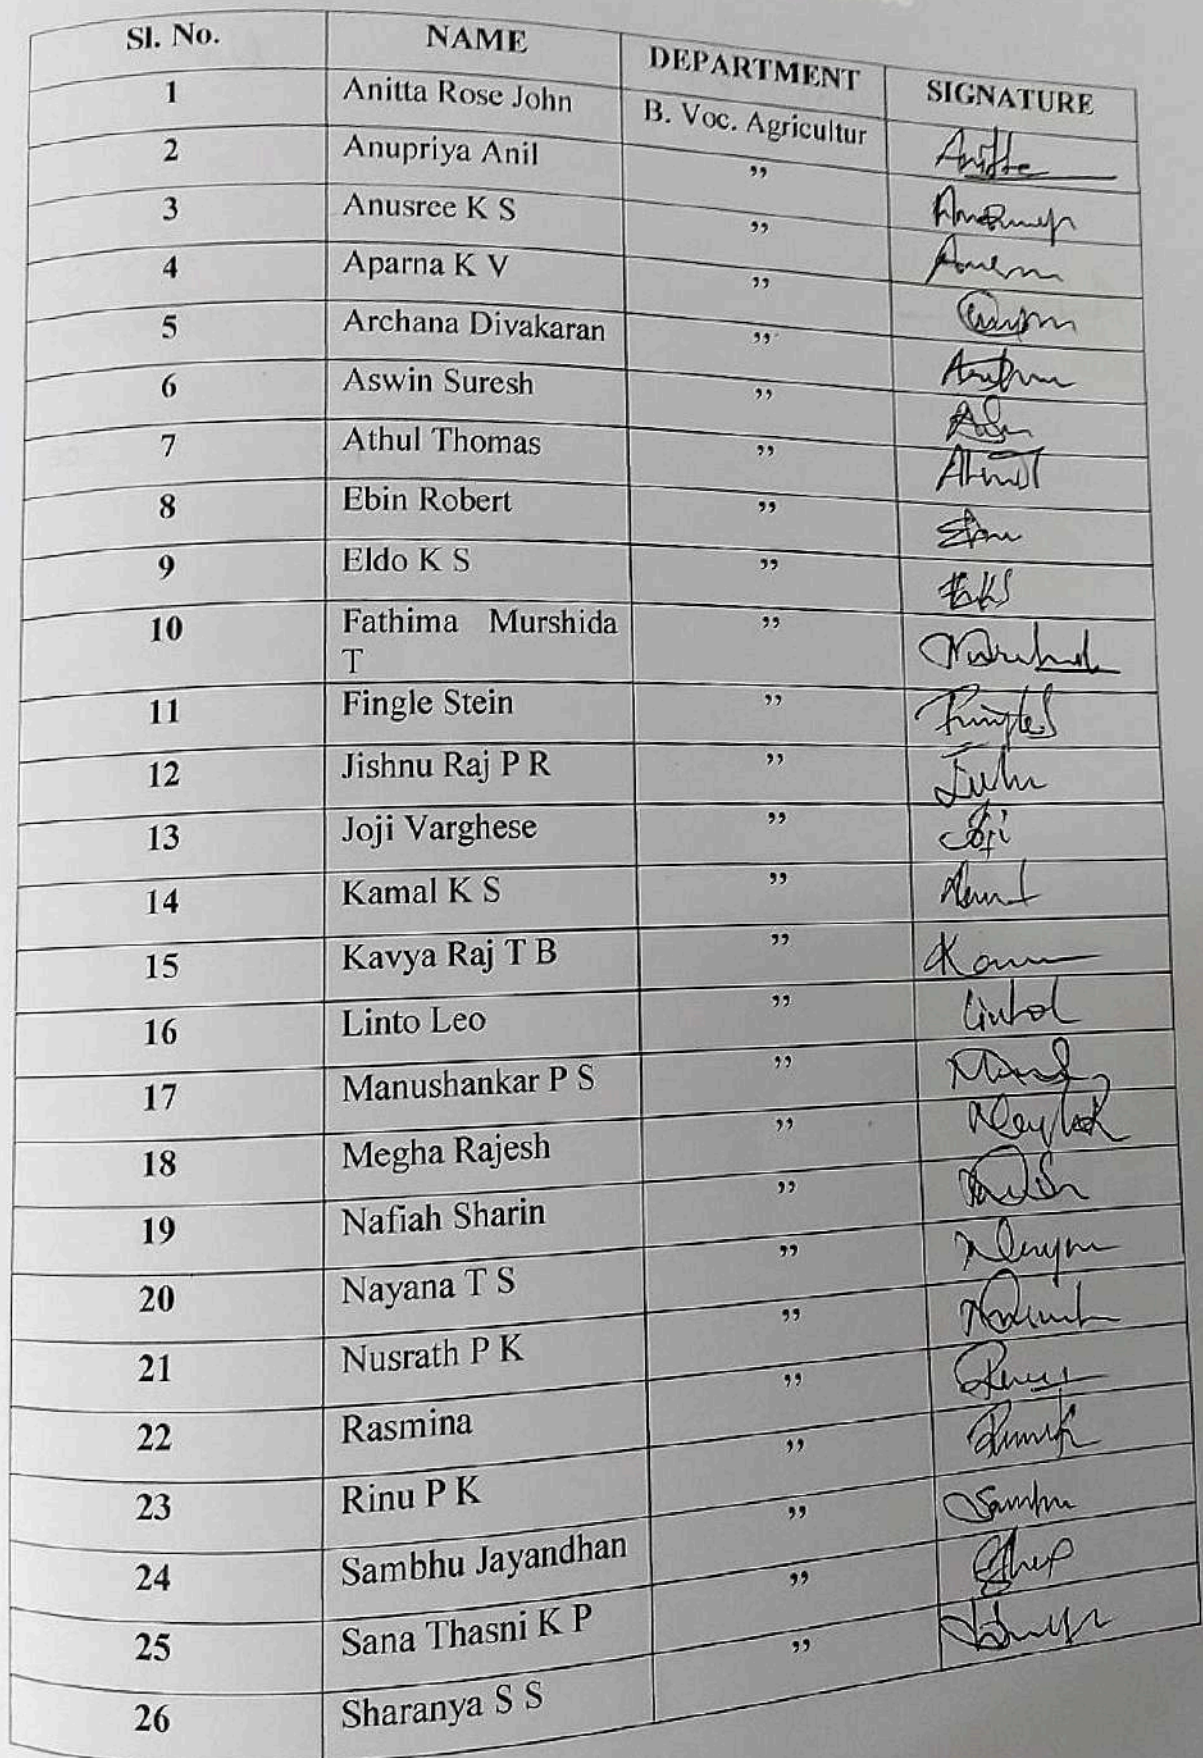 Sl. No. NAME DEPARTMENT SIGNATURE
1 Anitta Rose John B. Voc. Agricultur Anitta
2 Anupriya Anil ”
3 Anusree K S ”
4 Aparna K V ”
5 Archana Divakaran ”
6 Aswin Suresh ”
7 Athul Thomas ”
8 Ebin Robert ”
9 Eldo K S ” EKS
10 Fathima Murshida ”
T
11 Fingle Stein ”
12 Jishnu Raj P R ”
13 Joji Varghese ” Joji
14 Kamal K S ”
15 Kavya Raj T B ”
16 Linto Leo ”
17 Manushankar P S ”
18 Megha Rajesh ”
19 Nafiah Sharin ”
20 Nayana T S ”
21 Nusrath P K ”
22 Rasmina ”
23 Rinu P K ”
24 Sambhu Jayandhan ” Sambhu
25 Sana Thasni K P ”
26 Sharanya S S ”